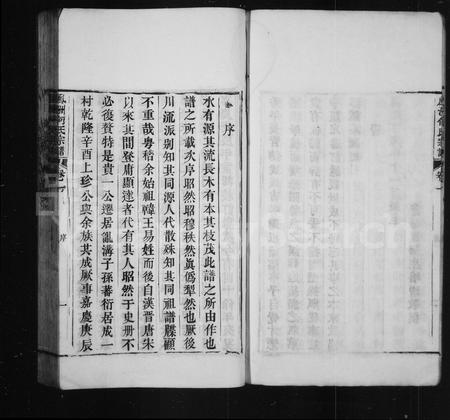 序
水有源其流長木有本其枝茂此譜之所由作也
譜之所載次序昭然昭穆秩然眞僞犁然也厥後
川流派別知其同源人代散殊知其同祖譜牒顧
不重哉粤稽余始祖韓王易姓而後自漢晉唐朱
以來其間登庸顯達者代有其人昭然于史册不
必復贅特是貴一公遷居龍溝子孫蕃衍居成一
村乾隆辛酉上珍公與余族其成厥事嘉慶庚辰
何氏宗譜
卷一
序
一